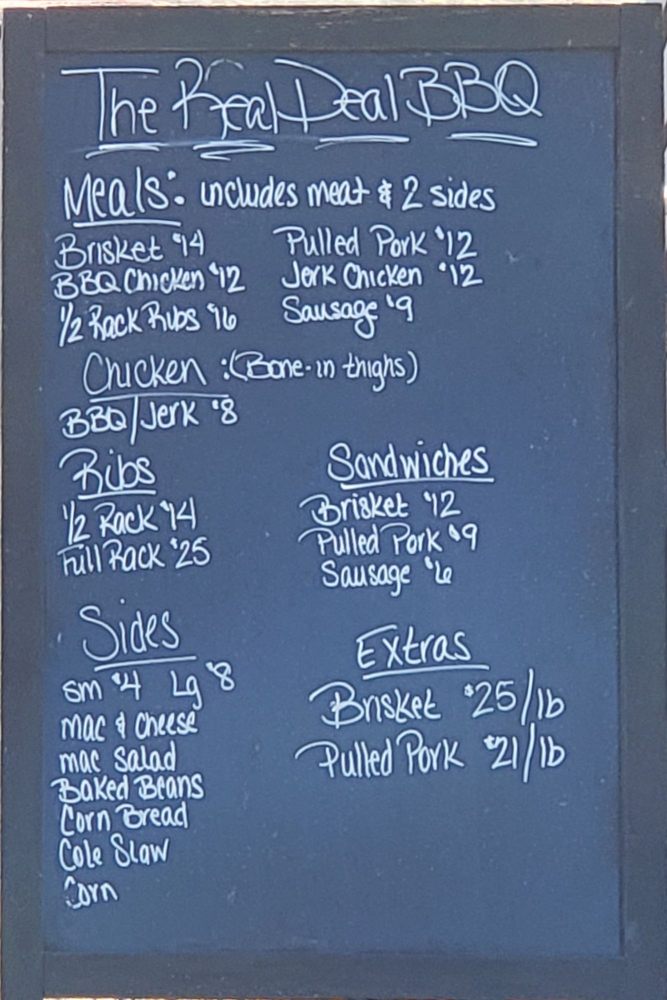 The Real Deal BBQ
Meals: includes meat & 2 sides
Brisket $14 Pulled Pork $12
BBQ Chicken $12 Jerk Chicken $12
1/2 Rack Ribs $16 Sausage $9
Chicken: (Bone-in thighs)
BBQ/Jerk $8
Ribs
1/2 Rack $14
Full Rack $25
Sandwiches
Brisket $12
Pulled Pork $9
Sausage $6
Sides
sm $4 Lg $8
mac & cheese
mac salad
Baked Beans
Corn Bread
Cole Slaw
Corn
Extras
Brisket $25/lb
Pulled Pork $21/lb